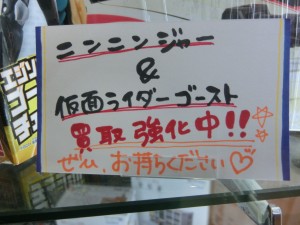 ニンニンジャー
&
仮面ライダーゴースト
買取強化中!!
ぜひ、お持ちください♡